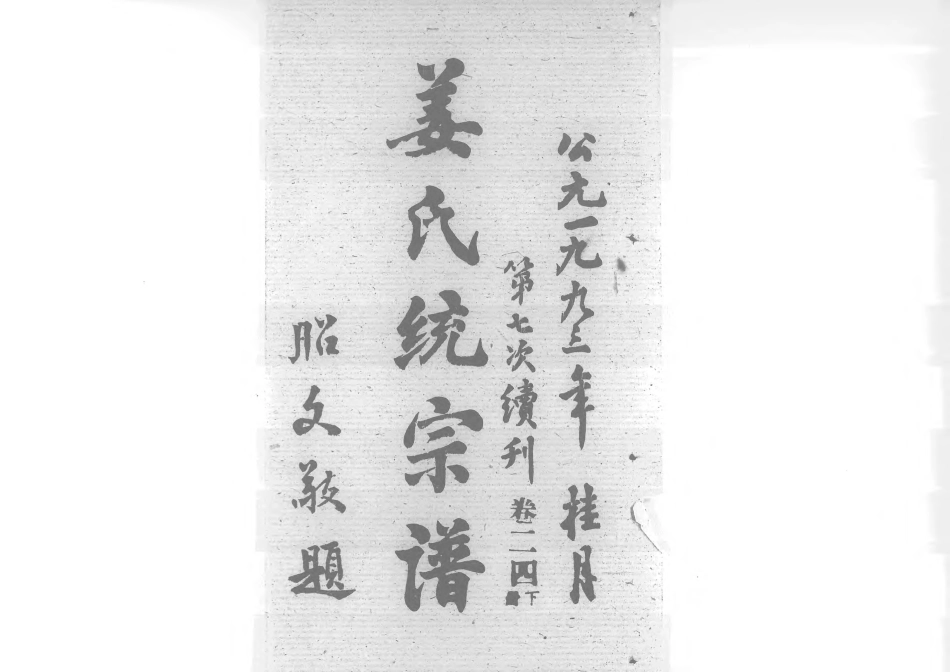 公元一九九三年 桂月
第七次續刊 卷二二四下
姜氏统宗谱
昭文敬題